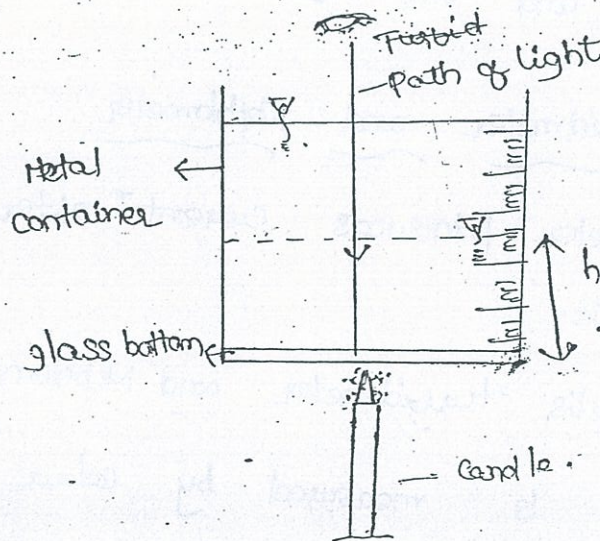 Turbid
Path of light
Metal
container
h
glass bottom
candle.